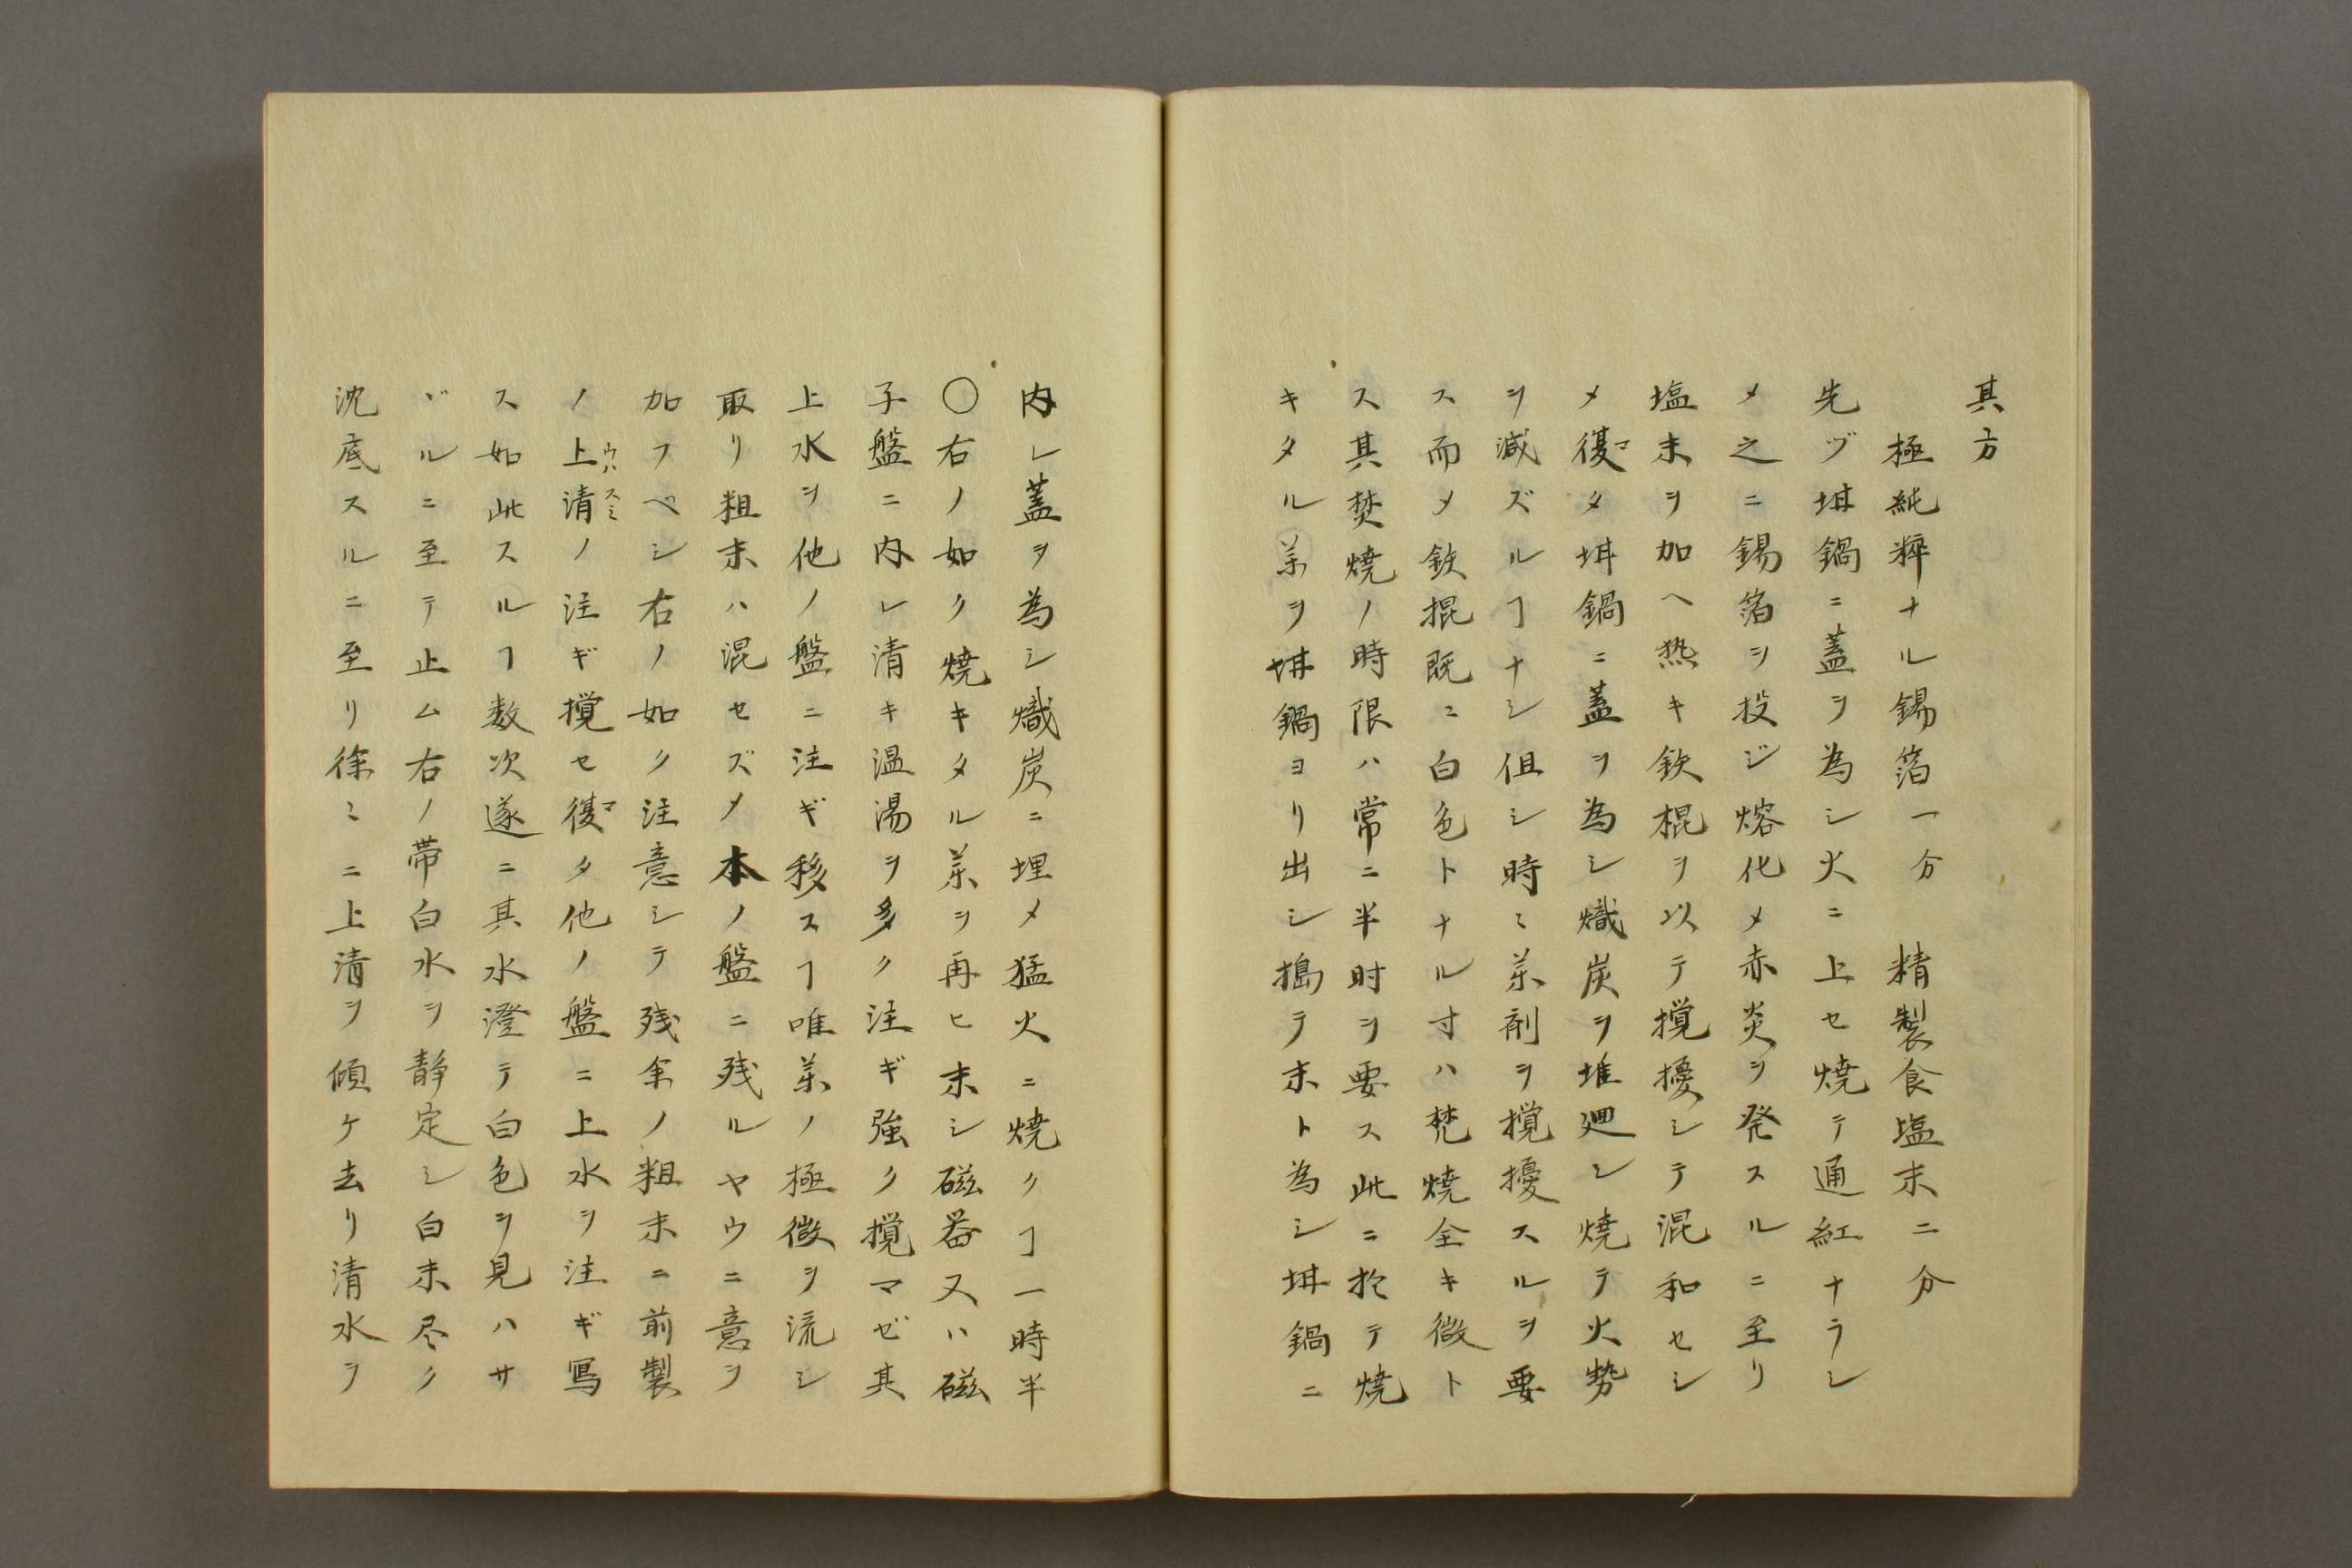 其方
極純粹ナル錫箔一分　精製食塩末二分
先ヅ坩鍋ニ蓋ヲ為シ火ニ上セ焼テ通紅ナラシ
メ之ニ錫箔ヲ投ジ熔化メ赤炎ヲ発スルニ至リ
塩末ヲ加ヘ熱キ鉄棍ヲ以テ撹擾シテ混和セシ
メ復マタ坩鍋ニ蓋ヲ為シ熾炭ヲ堆廻シ焼テ火勢
ヲ減ズルヿナシ但シ時ミ薬剤ヲ撹擾スルヲ要
ス而メ鉄棍既ニ白色トナル寸ハ焚焼全キ徴ト
ス其焚焼ノ時限ハ常ニ半时ヲ要ス此ニ於テ焼
キタル薬ヲ坩鍋ヨリ出シ搗テ末ト為シ坩鍋ニ
内レ蓋ヲ為シ熾炭ニ埋メ猛火ニ焼クヿ一時半
〇右ノ如ク焼キタル薬ヲ再ヒ末シ磁器又ハ磁
子盤ニ内レ清キ温湯ヲ多ク注ギ強ク撹マゼ其
上水ヲ他ノ盤ニ注ギ移スヿ唯薬ノ極微ヲ流シ
取リ粗末ハ混セズメ本ノ盤ニ残ルヤウニ意ヲ
加フベシ右ノ如ク注意シテ残余ノ粗末ニ前製
ノ上清ウハスミノ注ギ撹セ復マタ他ノ盤ニ上水ヲ注ギ写
ス如此スルヿ数次遂ニ其水澄テ白色ヲ見ハサ
ヾルニ至テ止ム右ノ帯白水ヲ静定シ白末尽ク
沈底スルニ至リ徐ミニ上清ヲ傾ケ去リ清水ヲ